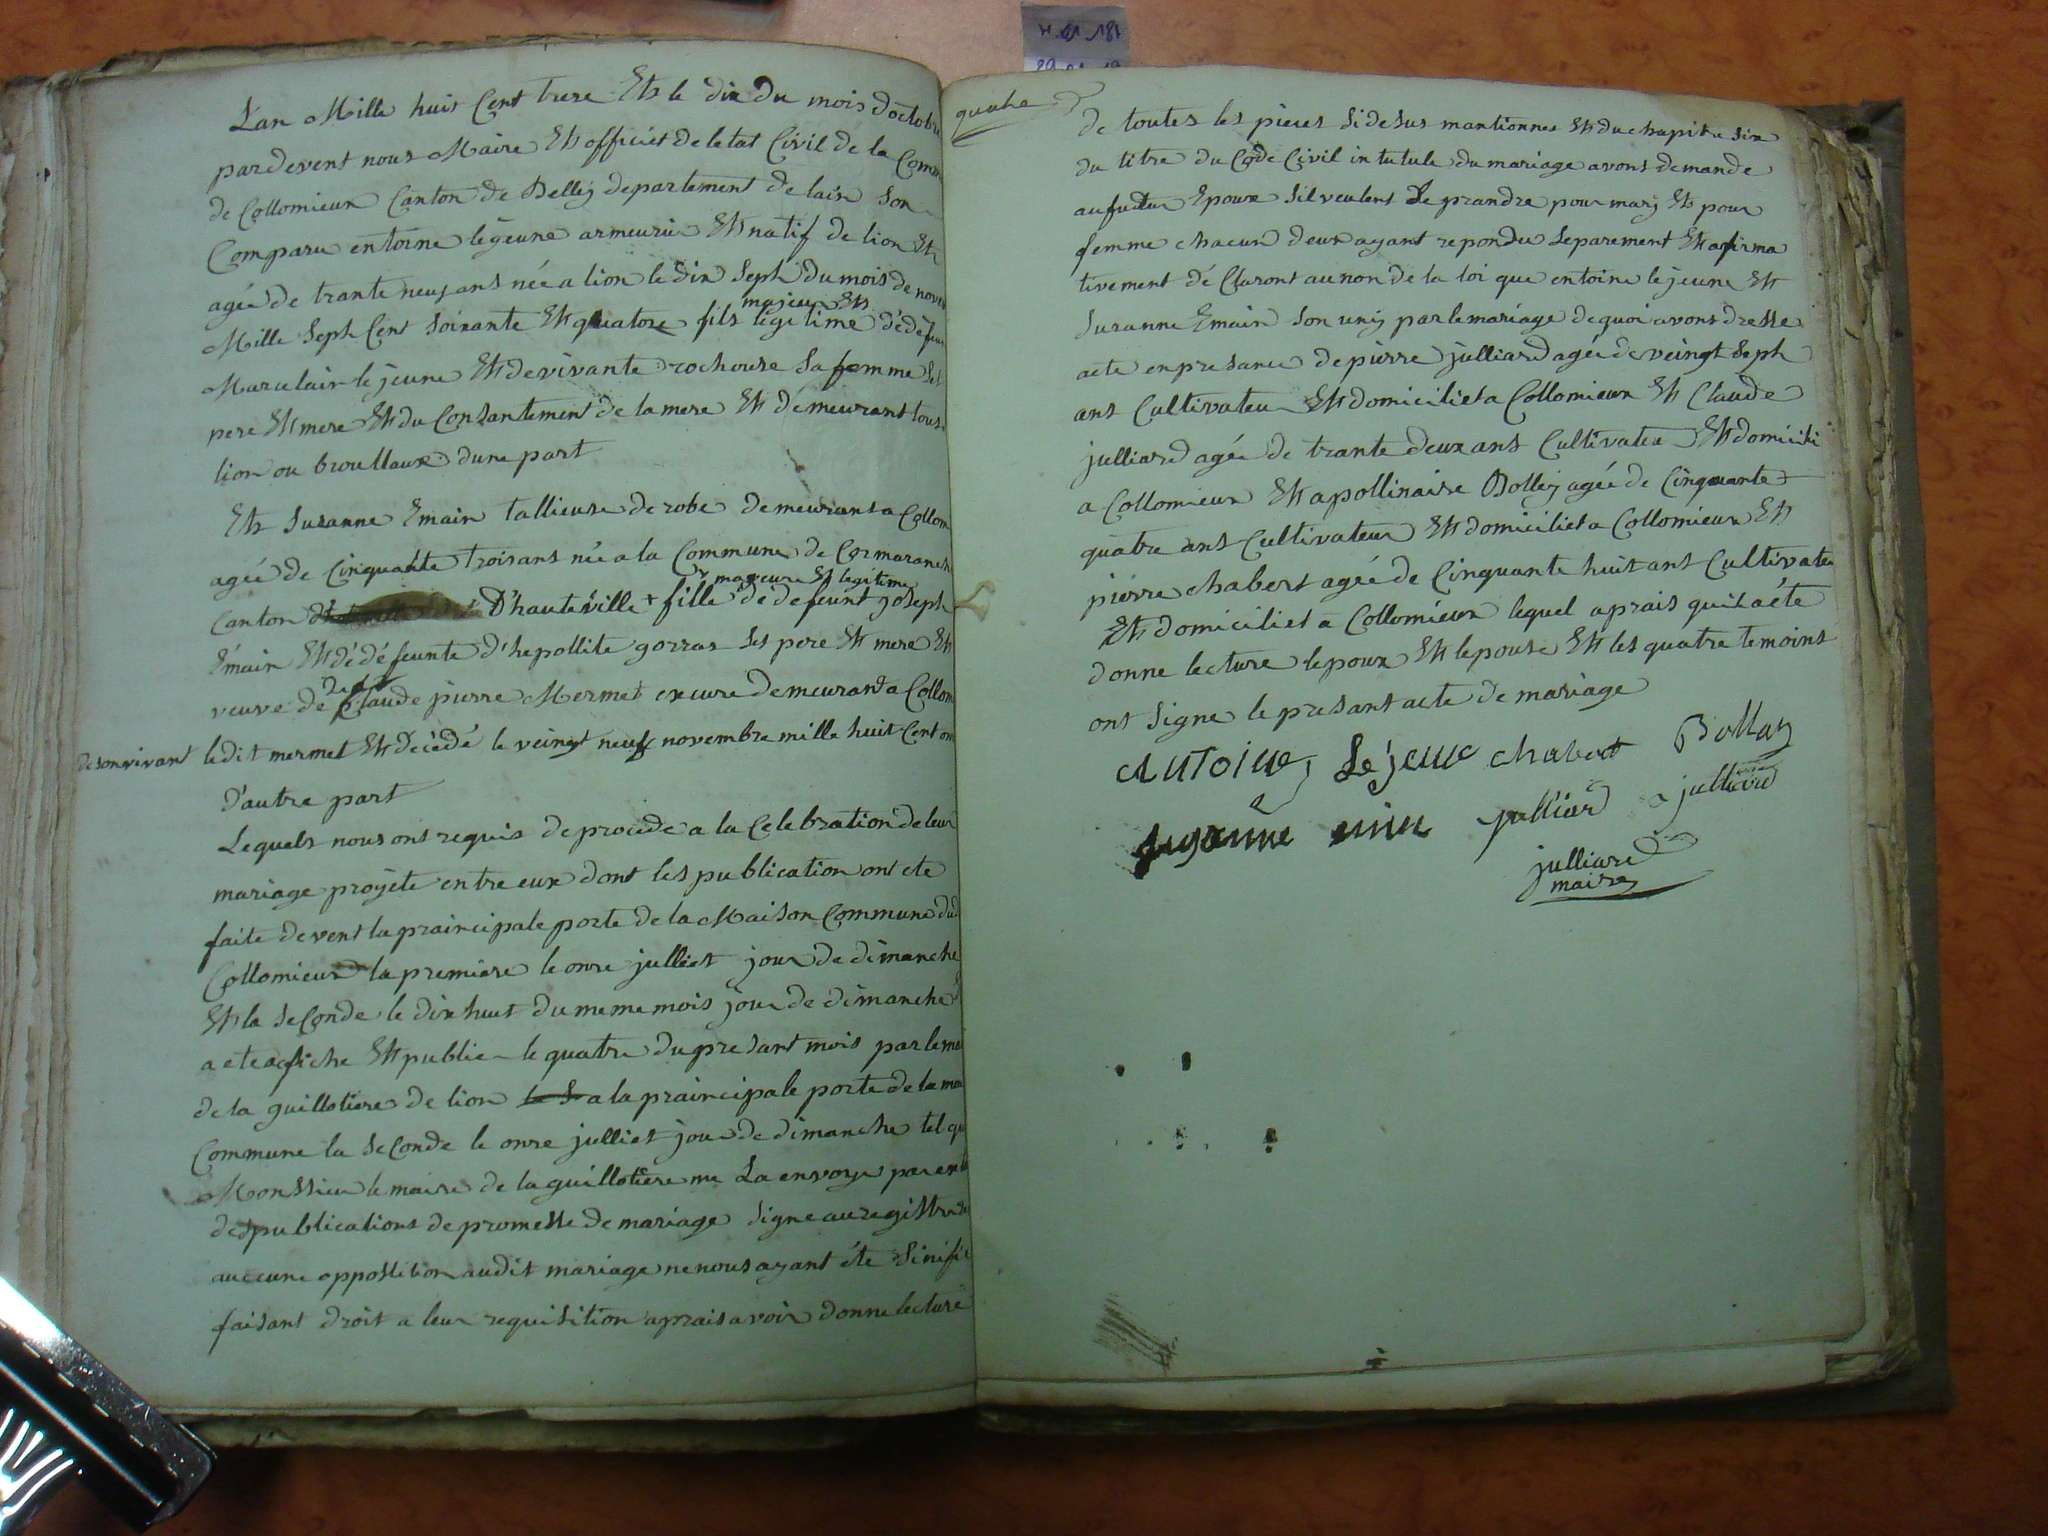 Lan Mille huit Cent treze Et le dix du mois doctobre
pardevent nous Maire Et officiét deletat Civil de la Comm
de Collomieux Canton de Belley departement de lain son
Comparu entoine légeune armeurié Et natif de lion Et
agée de trante neuf ans née a lion le dix Seph du mois de novem
majeur Et
Mille Seph Cent Soixante Et quatoze fils légitime dédéfeun
Marulair le jeune Et devivante rochouse Sa femme Ses
pere Et mere Et du Consantement de la mere Et demeurant tous
lion ou broutlaux dune part
Et Suzanne Emain tallieuse de robe demeurant a Collom
agée de Cinquante troisans née a la Commune de Cormaranch
majeure Et legitime
Canton D'hauteville + fille de defeunt joseph
Emain Et dédéfeunte d'hepollite gorras Ses pere Et mere Et
veuve de Claude pierre Mermet en cure demeurant a Collom
de son vivant ledit mermet Et décédé le veingt neuf novembre mille huit Cent on
D'autre part
Lequels nous ons requis de procede a la Celebration de leur
mariage projète entre eux dont les publication ont ete
faite devent la praincipale porte de la Maison Commune dud
Collomieux la premiere le onze julliet jour de dimanche
Et la seconde le dix huit du meme mois jour de dimanche
a ete afiche Et publie le quatre du presant mois par le ma
de la guillotiere de lion a la praincipale porte de la ma
Commune la seconde le onze julliet jour de dimanche tel qu
Monssieur le maire de la guillotiere me La envoye par
des publications de promesse de mariage Signe au registre
auccune oppossition audit mariage ne nous ayant éte Sinifie
faisant droit a leur requisition aprais avoir donne lecture
quatre
de toutes les pieces Sidesus mantionnes Et du chapitre Six
du titre du Code Civil intutule du mariage avons demande
au futur Epoux Sil veulent Se prandre pour mary Et pour
femme chacun deux ayant repondu Separement Et afirma
tivement dé Claront au non de la loi que entoine lejeune Et
Suzanne Emain Son uniy par le mariage de quoi avons dresse
acte en presance de pierre julliard agée de veingt Seph
ans Cultivateur Et domicilieta Collomieux Et Claude
julliard agée de trante deux ans Cultivateu Et domicili
a Collomieux Et apollinaire Bolley agée de Cinquante
quatre ans Cultivateur Et domicilieta Collomieux Et
pierre chabert agée de Cinquante huit ans Cultivate
Et domiciliet a Collomieux lequel aprais quil aéte
donne lecture lepoux Et lepouse Et les quatre temoins
ont Signe le presant acte de mariage
ANTOINE Léjeune chabert Bolley
suzanne emin julliard julliard
julliard
maire